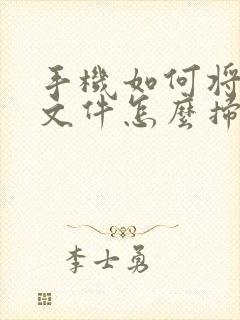 手機如何將
文件怎麼掃
李士勇